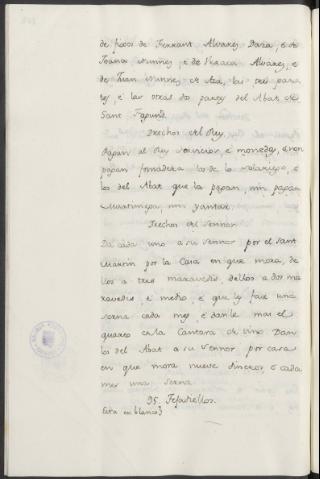 de fixos de Ferrant Alvarez Daria, e de
Joana Nunnez, e de Urraca Alvarez, e
de Juan Nunnez de Aza, las tres partes,
e las otras dos partes del Abat de
Sant Fagund.
Derechos del Rey.
Pagan al Rey servicios, e monedas, e non
pagan fonsadera los de lo solariego, e
los del Abat que la pagan, nin pagan
Martiniega, nin yantar.
Derechos del Sennor.
Da cada uno a su Sennor por el Sant
Martin por la Casa en que mora, de
llos a tres maravedis, dellos a dos ma
ravedis e medio, e que ly face una
serna cada mes, e danle mas el
quarto en la Cantara de vino. Dan
los del Abat a su Sennor por casa
en que mora nueve dineros e cada
mes una serna.
95. Fefarellos.
(esta en blanco)